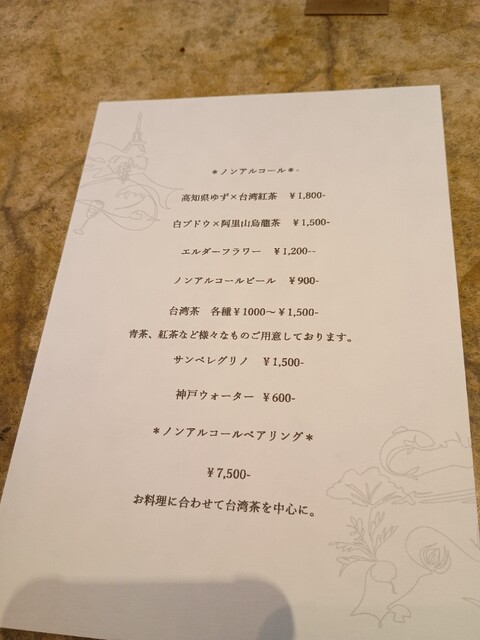 ＊ノンアルコール＊-
高知県ゆず×台湾紅茶　¥1,800-
白ブドウ×阿里山烏龍茶　¥1,500-
エルダーフラワー　¥1,200--
ノンアルコールビール　¥900-
台湾茶　各種¥1000～¥1,500-
青茶、紅茶など様々なものご用意しております。
サンペレグリノ　¥1,500-
神戸ウォーター　¥600-
＊ノンアルコールペアリング＊
¥7,500-
お料理に合わせて台湾茶を中心に。